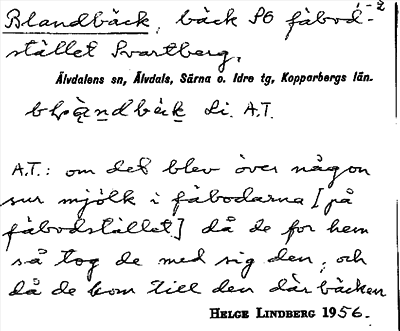 Blandbäck, bäck SO fäbod-
stället Svartberg.
-2
Älvdalens sn, Älvdals, Särna o. Idre tg, Kopparbergs län.
Li. A.T.
A.T.: om det blev över någon
sur mjölk i fäbodarna [på
fäbodstället] då de for hem
så tog de med sig den, och
då de kom till den där bäcken
HELGE LINDBERG 1956.